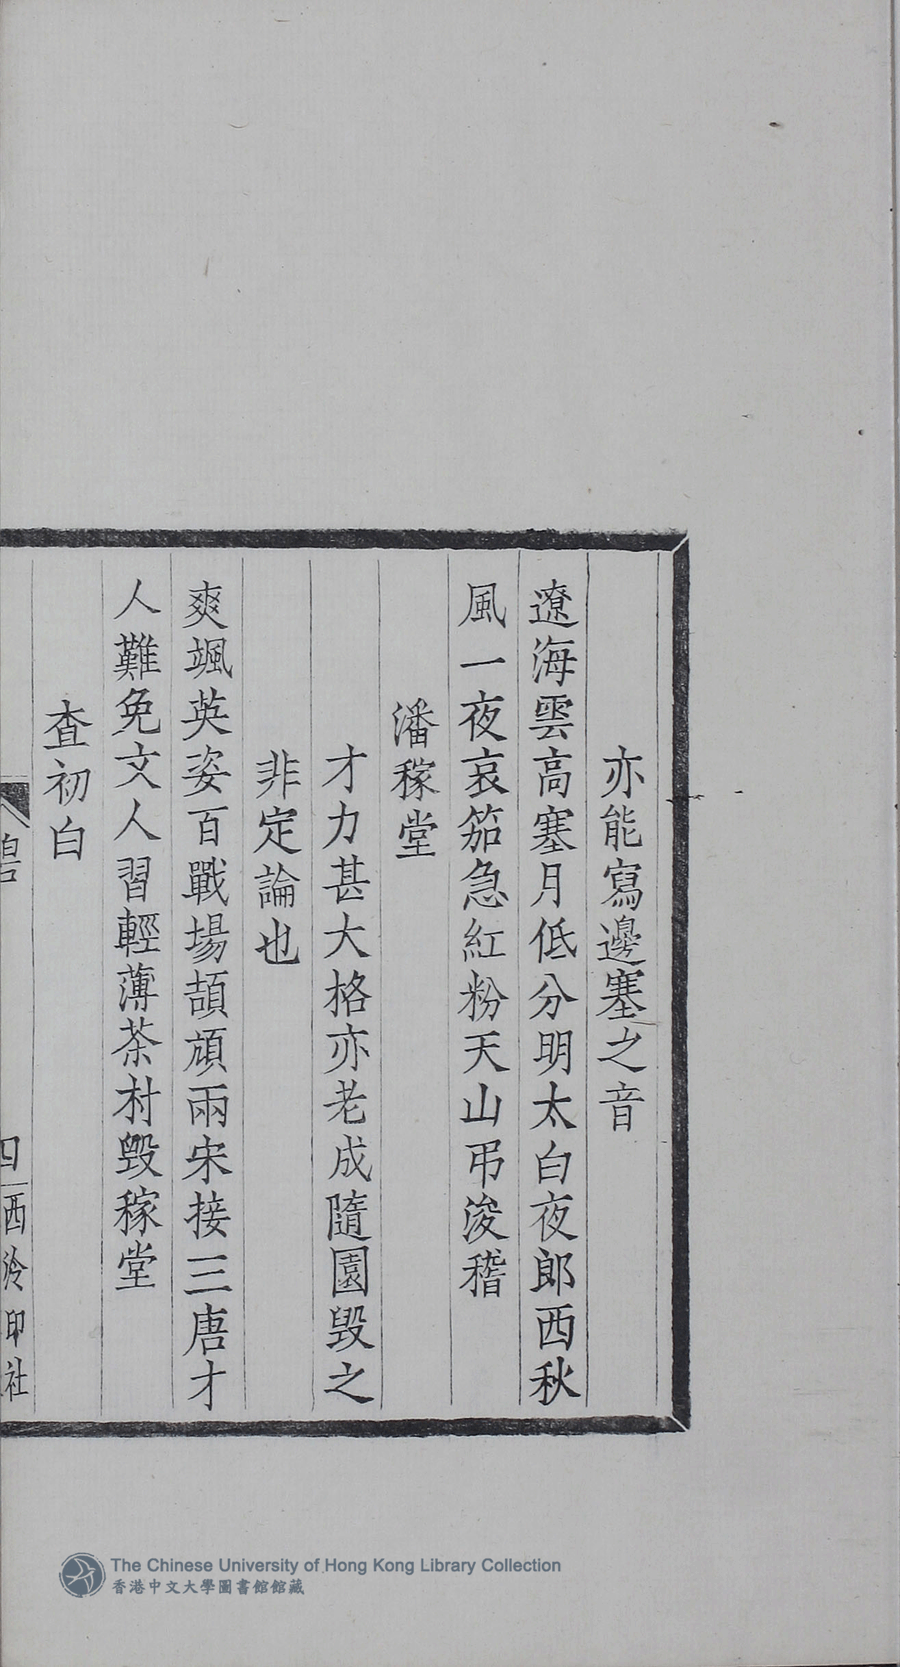 亦能寫邊塞之音
遼海雲高塞月低分明太白夜郎西秋
風一夜哀笳急紅粉天山弔浚稽
潘稼堂
才力甚大格亦老成隨園毀之
非定論也
爽颯英姿百戰場頡頏兩宋接三唐才
人難免文人習輕薄茶村毀稼堂
查初白
四
西泠印社
The Chinese University of Hong Kong Library Collection
香港中文大學圖書館館藏